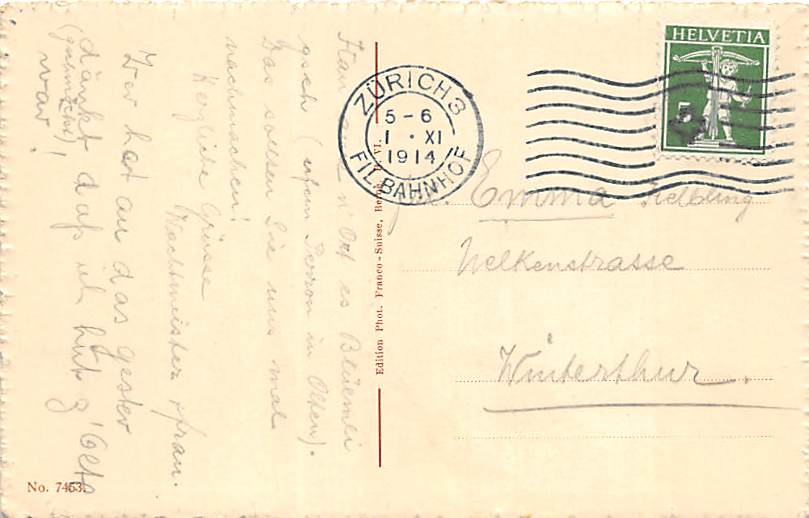 HELVETIA
5
ZÜRICH 3
5-6
1 · XI
1914
FIL. BAHNHOF
Emma
Nelkenstrasse
Winterthur.
Edition Phot. Franco-Suisse, Be
No. 7453.
Hau n' Ort es Blüemli
gseh (uf em Perron in Olten).
Das sollen Sie uns mal
nachmachen!
Herzliche Grüsse
Wachtmeister & frau.
Wer hät au das gester
dänkt daß ich hüt z' Olte
war!